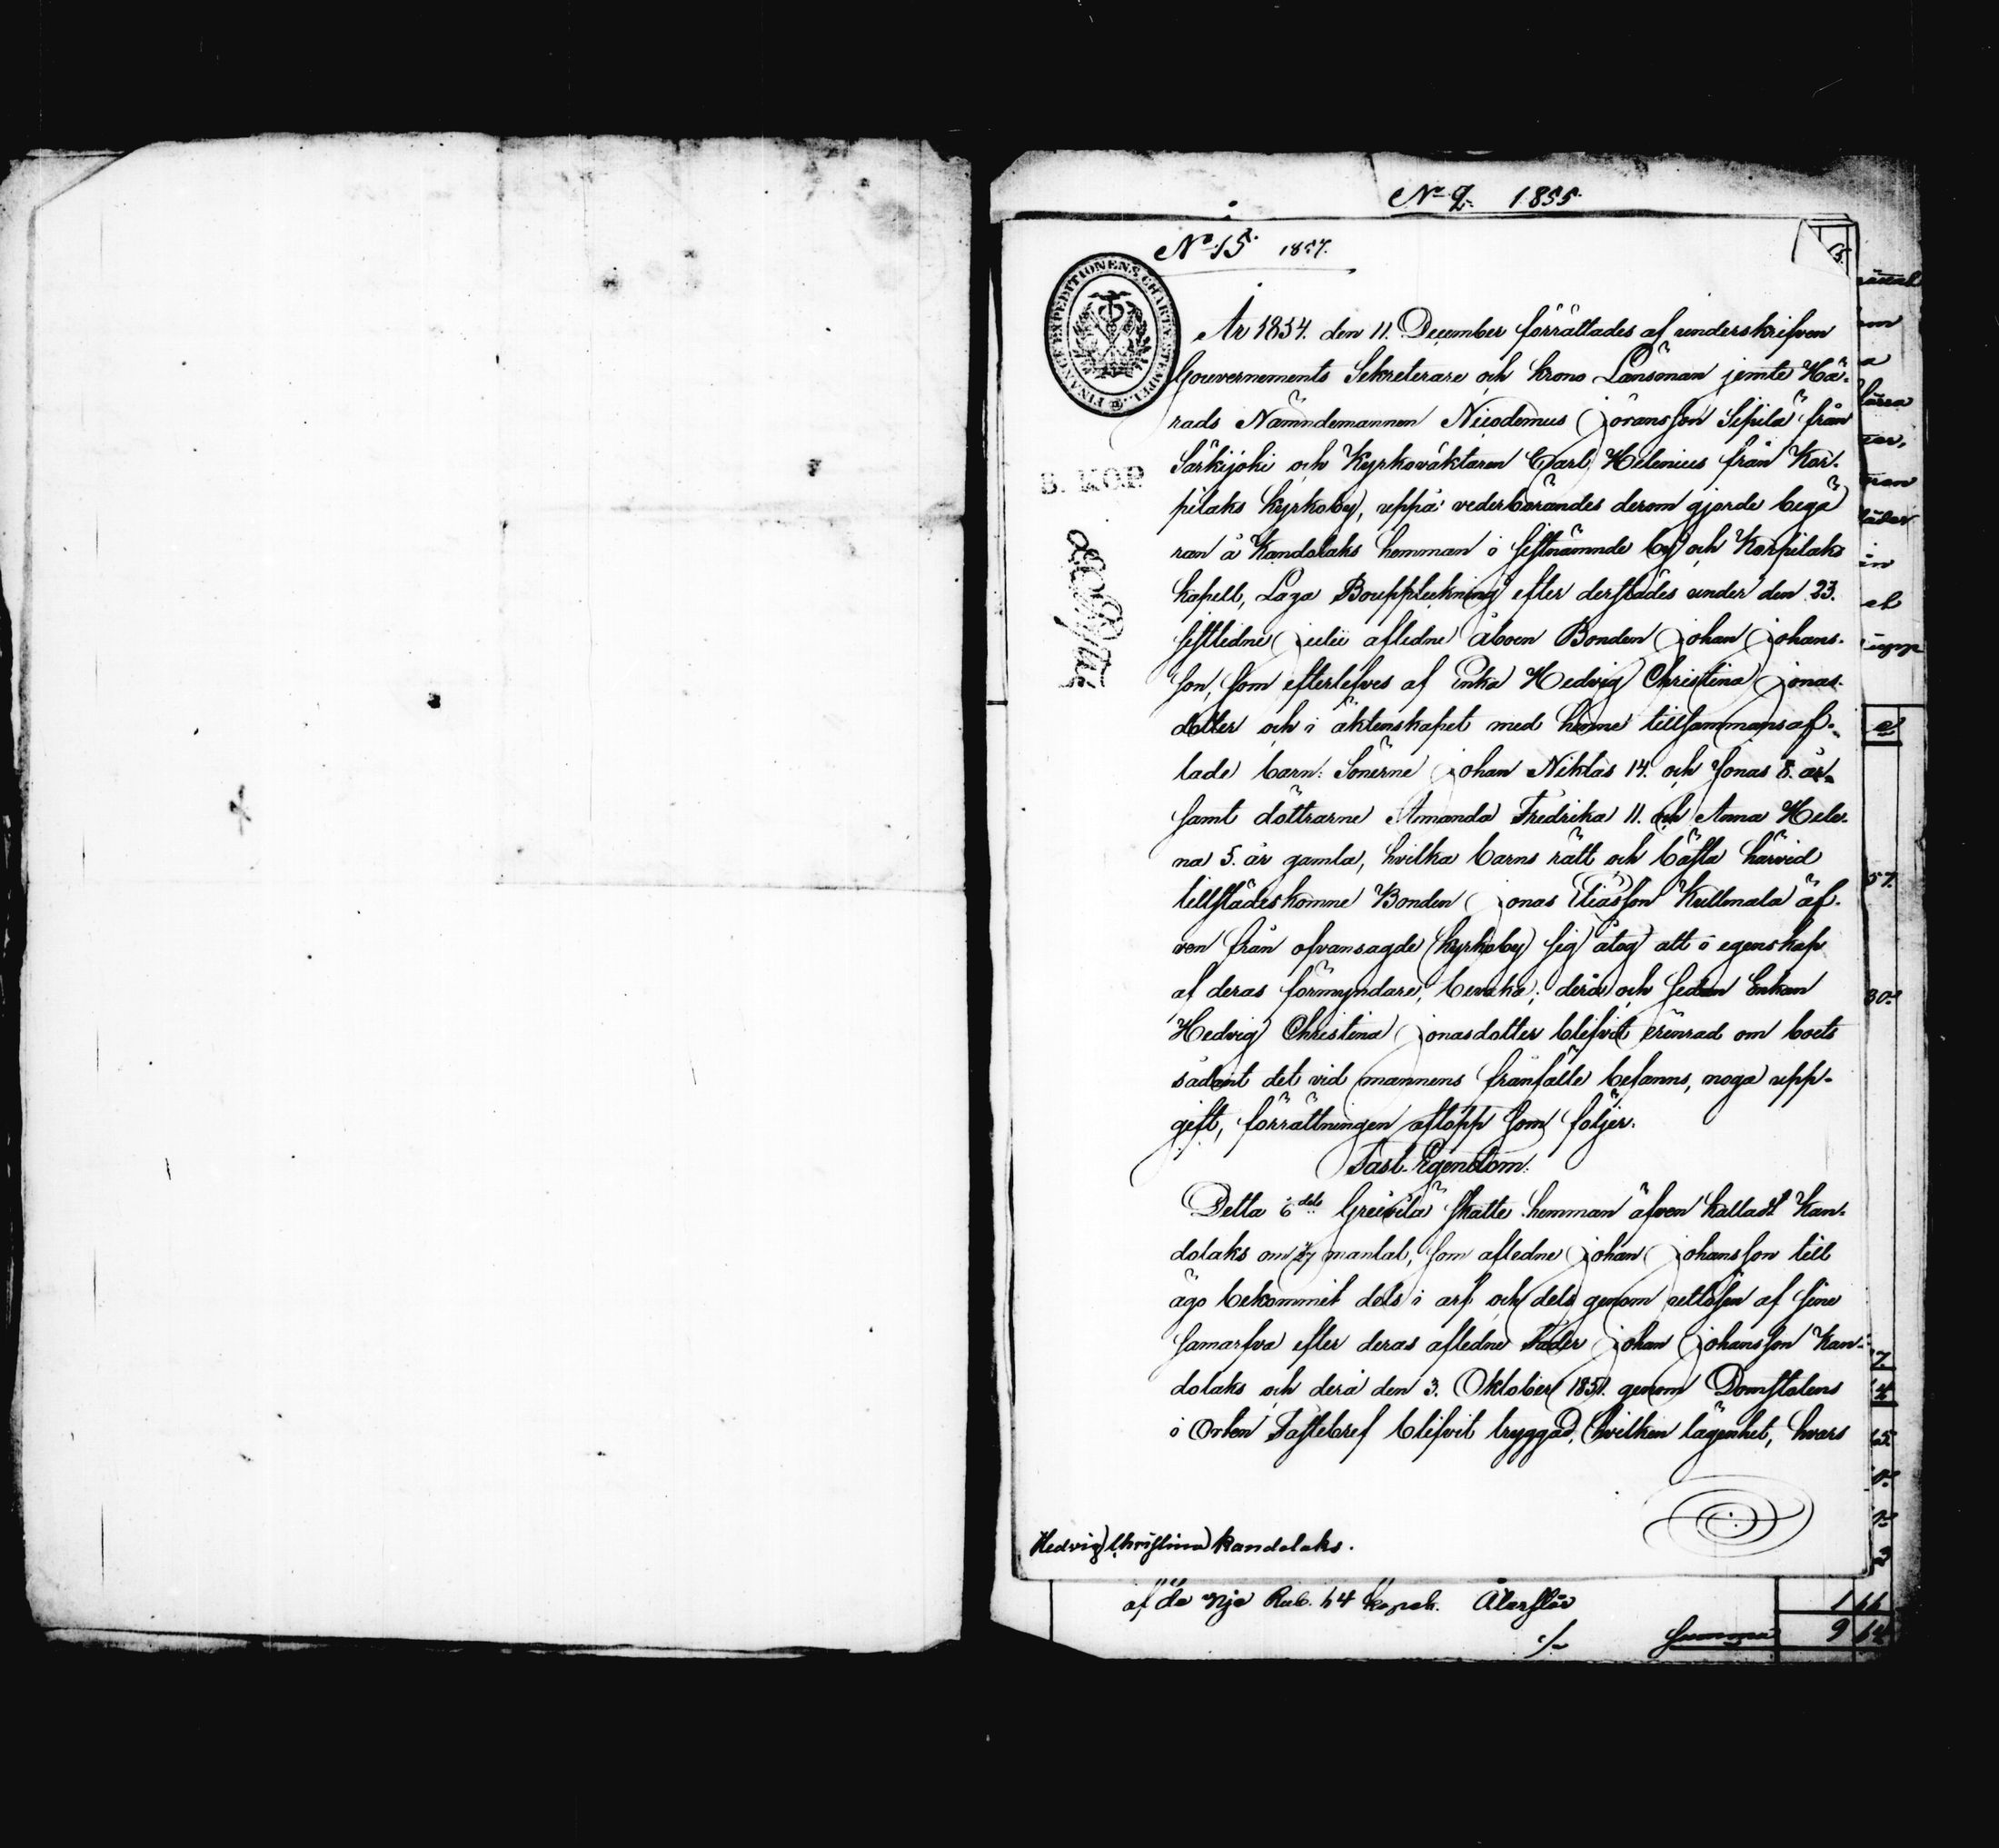 No 2. 1855.
No 15. 1857.
FINANCE EXPEDITIONENS CHARTÆ STEMPEL.
5 KOP.
År 1854. den 11. December förrättades af underskrifven
Gouvernements Sekreterare och krono Länsman jemte Hä-
rads Nämndemannen Nicodemus Göransson Sipilä från
Särkijoki och Kyrkoväktaren Carl Helenius från Kor-
pilaks kyrkoby, uppå vederbörandes derom gjorde begä
ran å Kandolaks hemman i sistnämnde by och Korpilaks
kapell, Laga Bouppteckning efter derstädes under den 23.
sistledne Julii aflidne åboen Bonden Johan Johans-
son, som efterlefves af Enka Hedvig Christina Jonas-
dotter och i äktenskapet med henne tillsammansaf-
lade barn: Sönerne Johan Niklas 14. och Jonas 8. år
samt döttrarne Amanda Fredrika 11. och Anna Hele-
na 5. år gamla, hvilka barns rätt och bästa härvid
tillstädeskomne Bonden Jonas Eliasson Kullmala äf-
ven från ofvansagde kyrkoby sig åtog att i egenskap
af deras förmyndare, bevaka; derå och sedan Enkan
Hedvig Christina Jonasdotter blifvit erinrad om boets
sådant det vid mannens frånfälle befanns, noga upp-
gift, förrättningen aflopp som följer.
Fast Egendom.
Detta 6dels Greivilä skatte hemman äfven kalladt Kan-
dolaks om mantal, som aflidne Johan Johansson till
ägo bekommit dels i arf och dels genom utlösen af sine
samarfva efter deras aflidne Fader Johan Johansson Kan-
dolaks och derå den 3. Oktober 1851. genom Domstolens
i Orten Fastebref blifvit tryggad, hvilken lägenhet, hvars
Hedvig Christina Kandolaks.
af de nio Rub. 64 kopek. Återstår 1 66
Summa 9 64